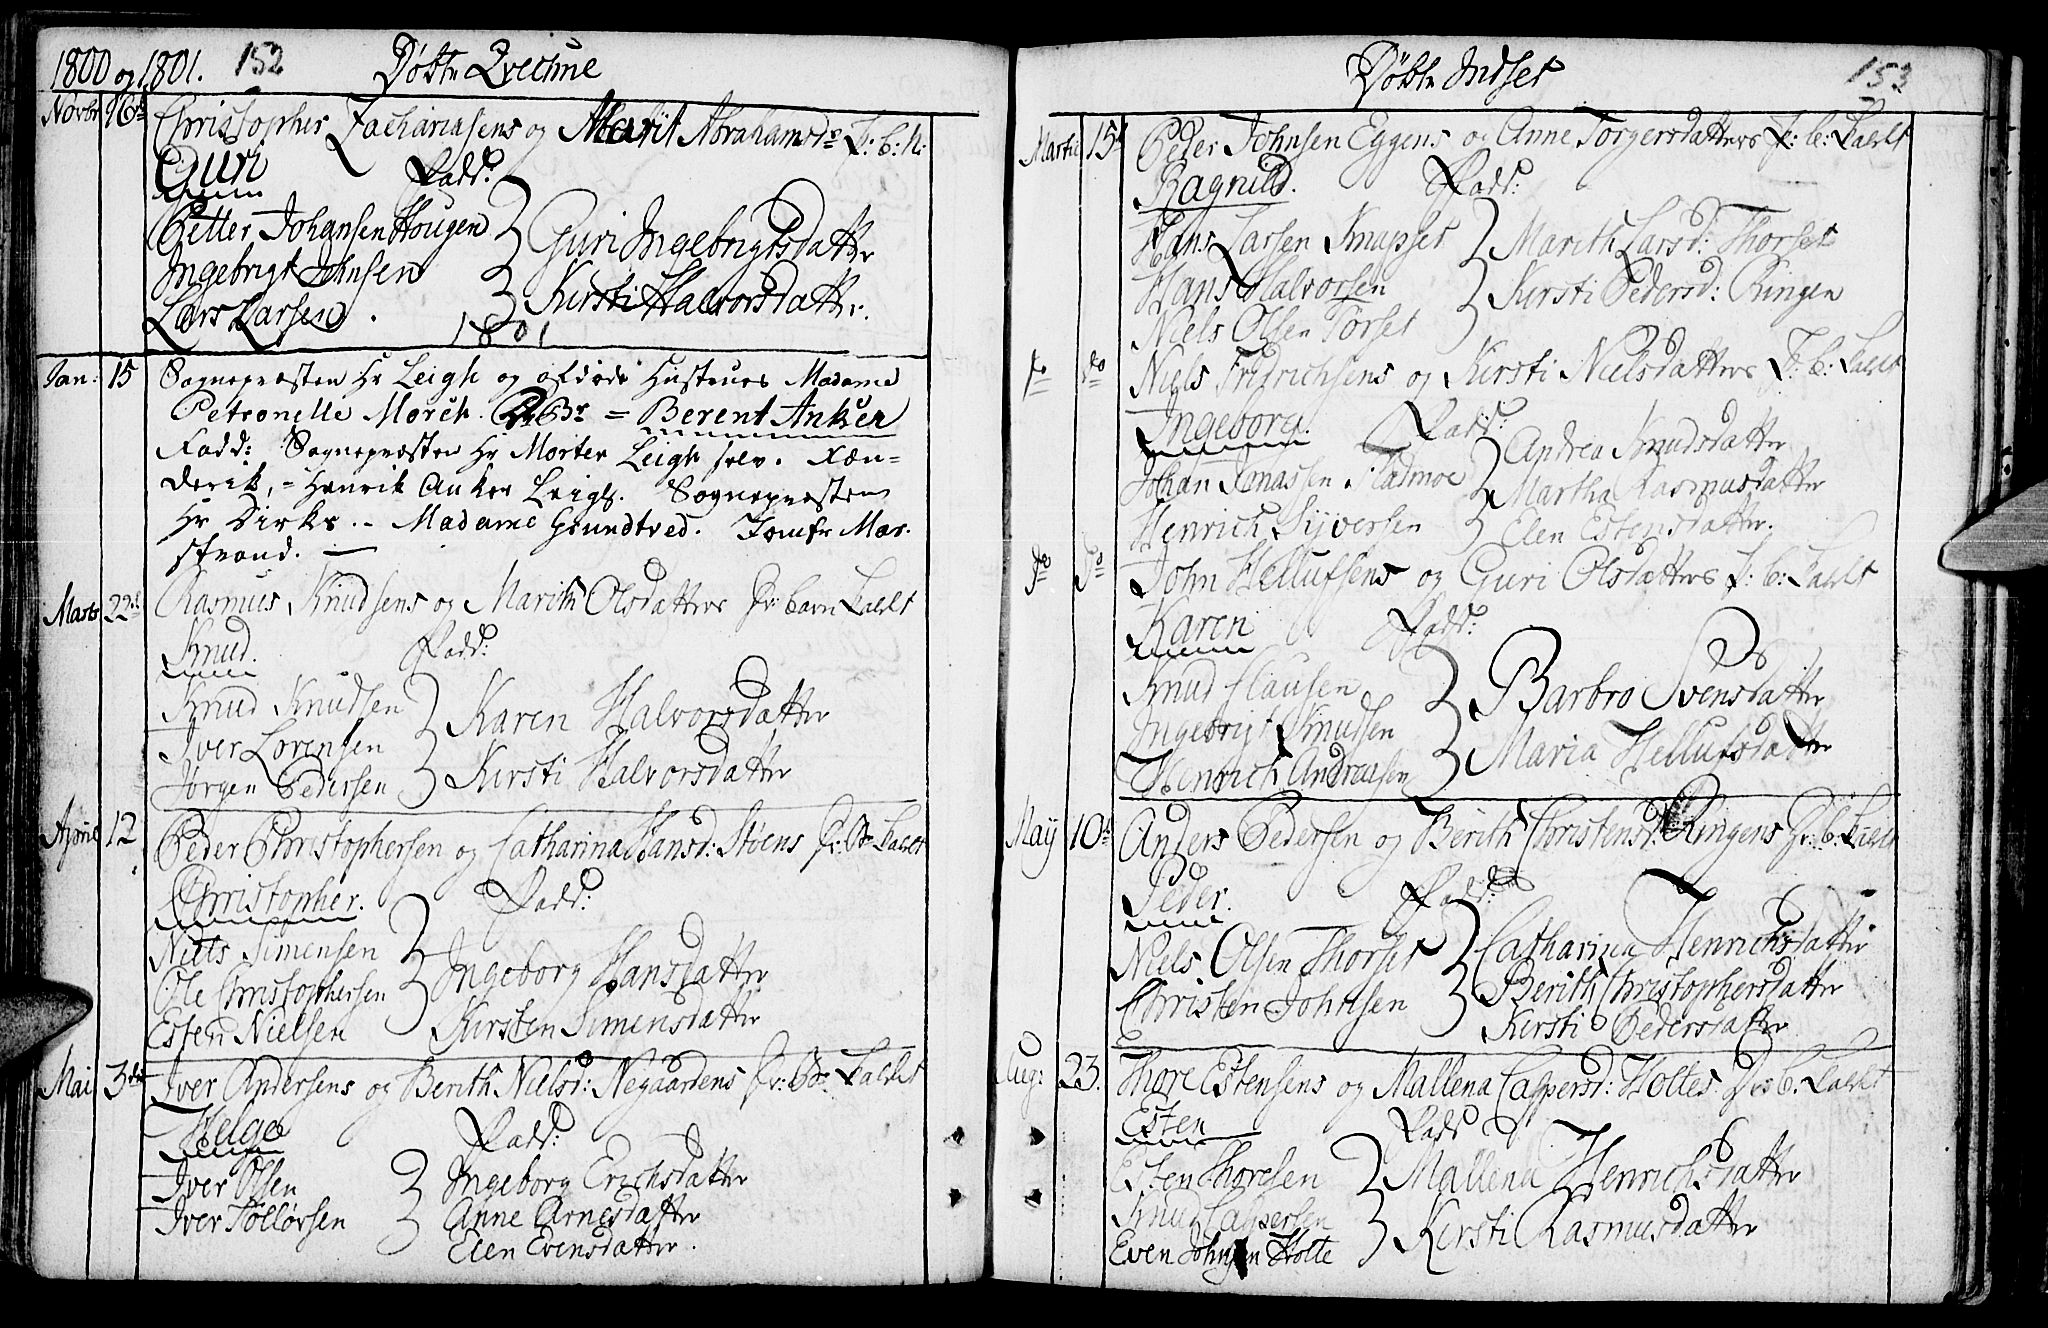 1800 og 1801. 152 Døbte Qvechne
Novbr 16de Christopher Zachariasens og Marit Abrahamsdr F: b: N:
Guri Fadd:
Petter Johansen Hougen Guri Ingebrigtsdatter
Ingebrigt Johnsen
Lars Larsen. Kirsti Halvorsdatter.
1801
Jan: 15 Sognepræsten Hr Leigh og afdøde Hustrues Madame
Petronelle Morch. Br = Berent Anker
Fadd: Sognepræsten Hr Morten Leigh selv. Fæn-
derik, - Henrik Anker Leigh. Sognepræsten
Hr Dirks. - Madame Grundtved. Jomfr Mar-
strand. —
Marts 22de Rasmus Knudsens og Marith Olsdatters Fr: barn Kaldt
Knud. Fadd:
Knud Knudsen Karen Halvorsdatter
Iver Lorensen
Jørgen Pedersen Kirsti Halvorsdatter
Aprile 12 Peder Christophersen og Catharina Hansd: Støens Fr: B: Kaldt
Christopher. Fadd:
Niels Simensen
Ole Christophersen Ingeborg Hansdatter
Esten Nielsen Kirsten Simensdatter
Mai 3die Iver Andersens og Berith Nielsd: Negaardens Fr: Br: Kaldet
Helge Fadd:
Iver Olsen Ingeborg Erichsdatter
Iver Tollørsen Anne Arnesdatter
Elen Evensdatter.
Døbte Indset 153
Martii 15de Peder Johnsen Eggens og Anne Torgersdatters F: b: Kaldt
Ragnild. Fadd:
Hans Larsen Knapset Marith Larsd: Thorset
Hans Halvorsen Kirsti Pedersd: Ringen
Niels Olsen Torset
do do Niels Fridrichsens og Kirsti Nielsdatters F: b: Kaldt
Ingeborg. Fadd:
Johan Jonassen Andrea Knudsdatter
Martha Rasmusdatter
Henrich Syversen Elen Estensdatter.
do do John Hellufsens og Guri Olsdatters F: b: Kaldt
Karen Fadd:
Knud Clausen Barbro Svensdatter
Ingebrigt Knudsen
Henrich Andreasen Maria Hellufsdatter
May 10de Anders Pedersen og Berith Christensd: Ringens Fr: b: Kaldt
Peder. Fadd:
Niels Olsen Thorset Catharina Henrichsdatter
Christen Johnsen Berith Christophersdatter
Kirsti Pedersdatter
Aug: 23. Thore Estensens og Mallena Caspersd: Holtes Fr: b: Kaldt
Esten Fadd
Esten Thoresen Mallena Henrichsdatter
Knud Caspersen Kirsti Rasmusdatter
Even Johnsen Holte